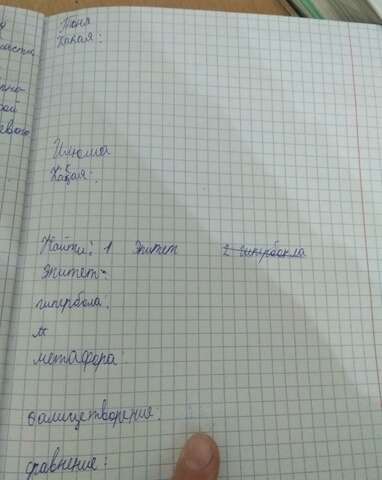 Тоня
Какая:
Илюша
Какая:
Найти: 1 эпитет 2 гипербола
эпитет:
гипербола.
м
метафора
олицетворение:
сравнение: